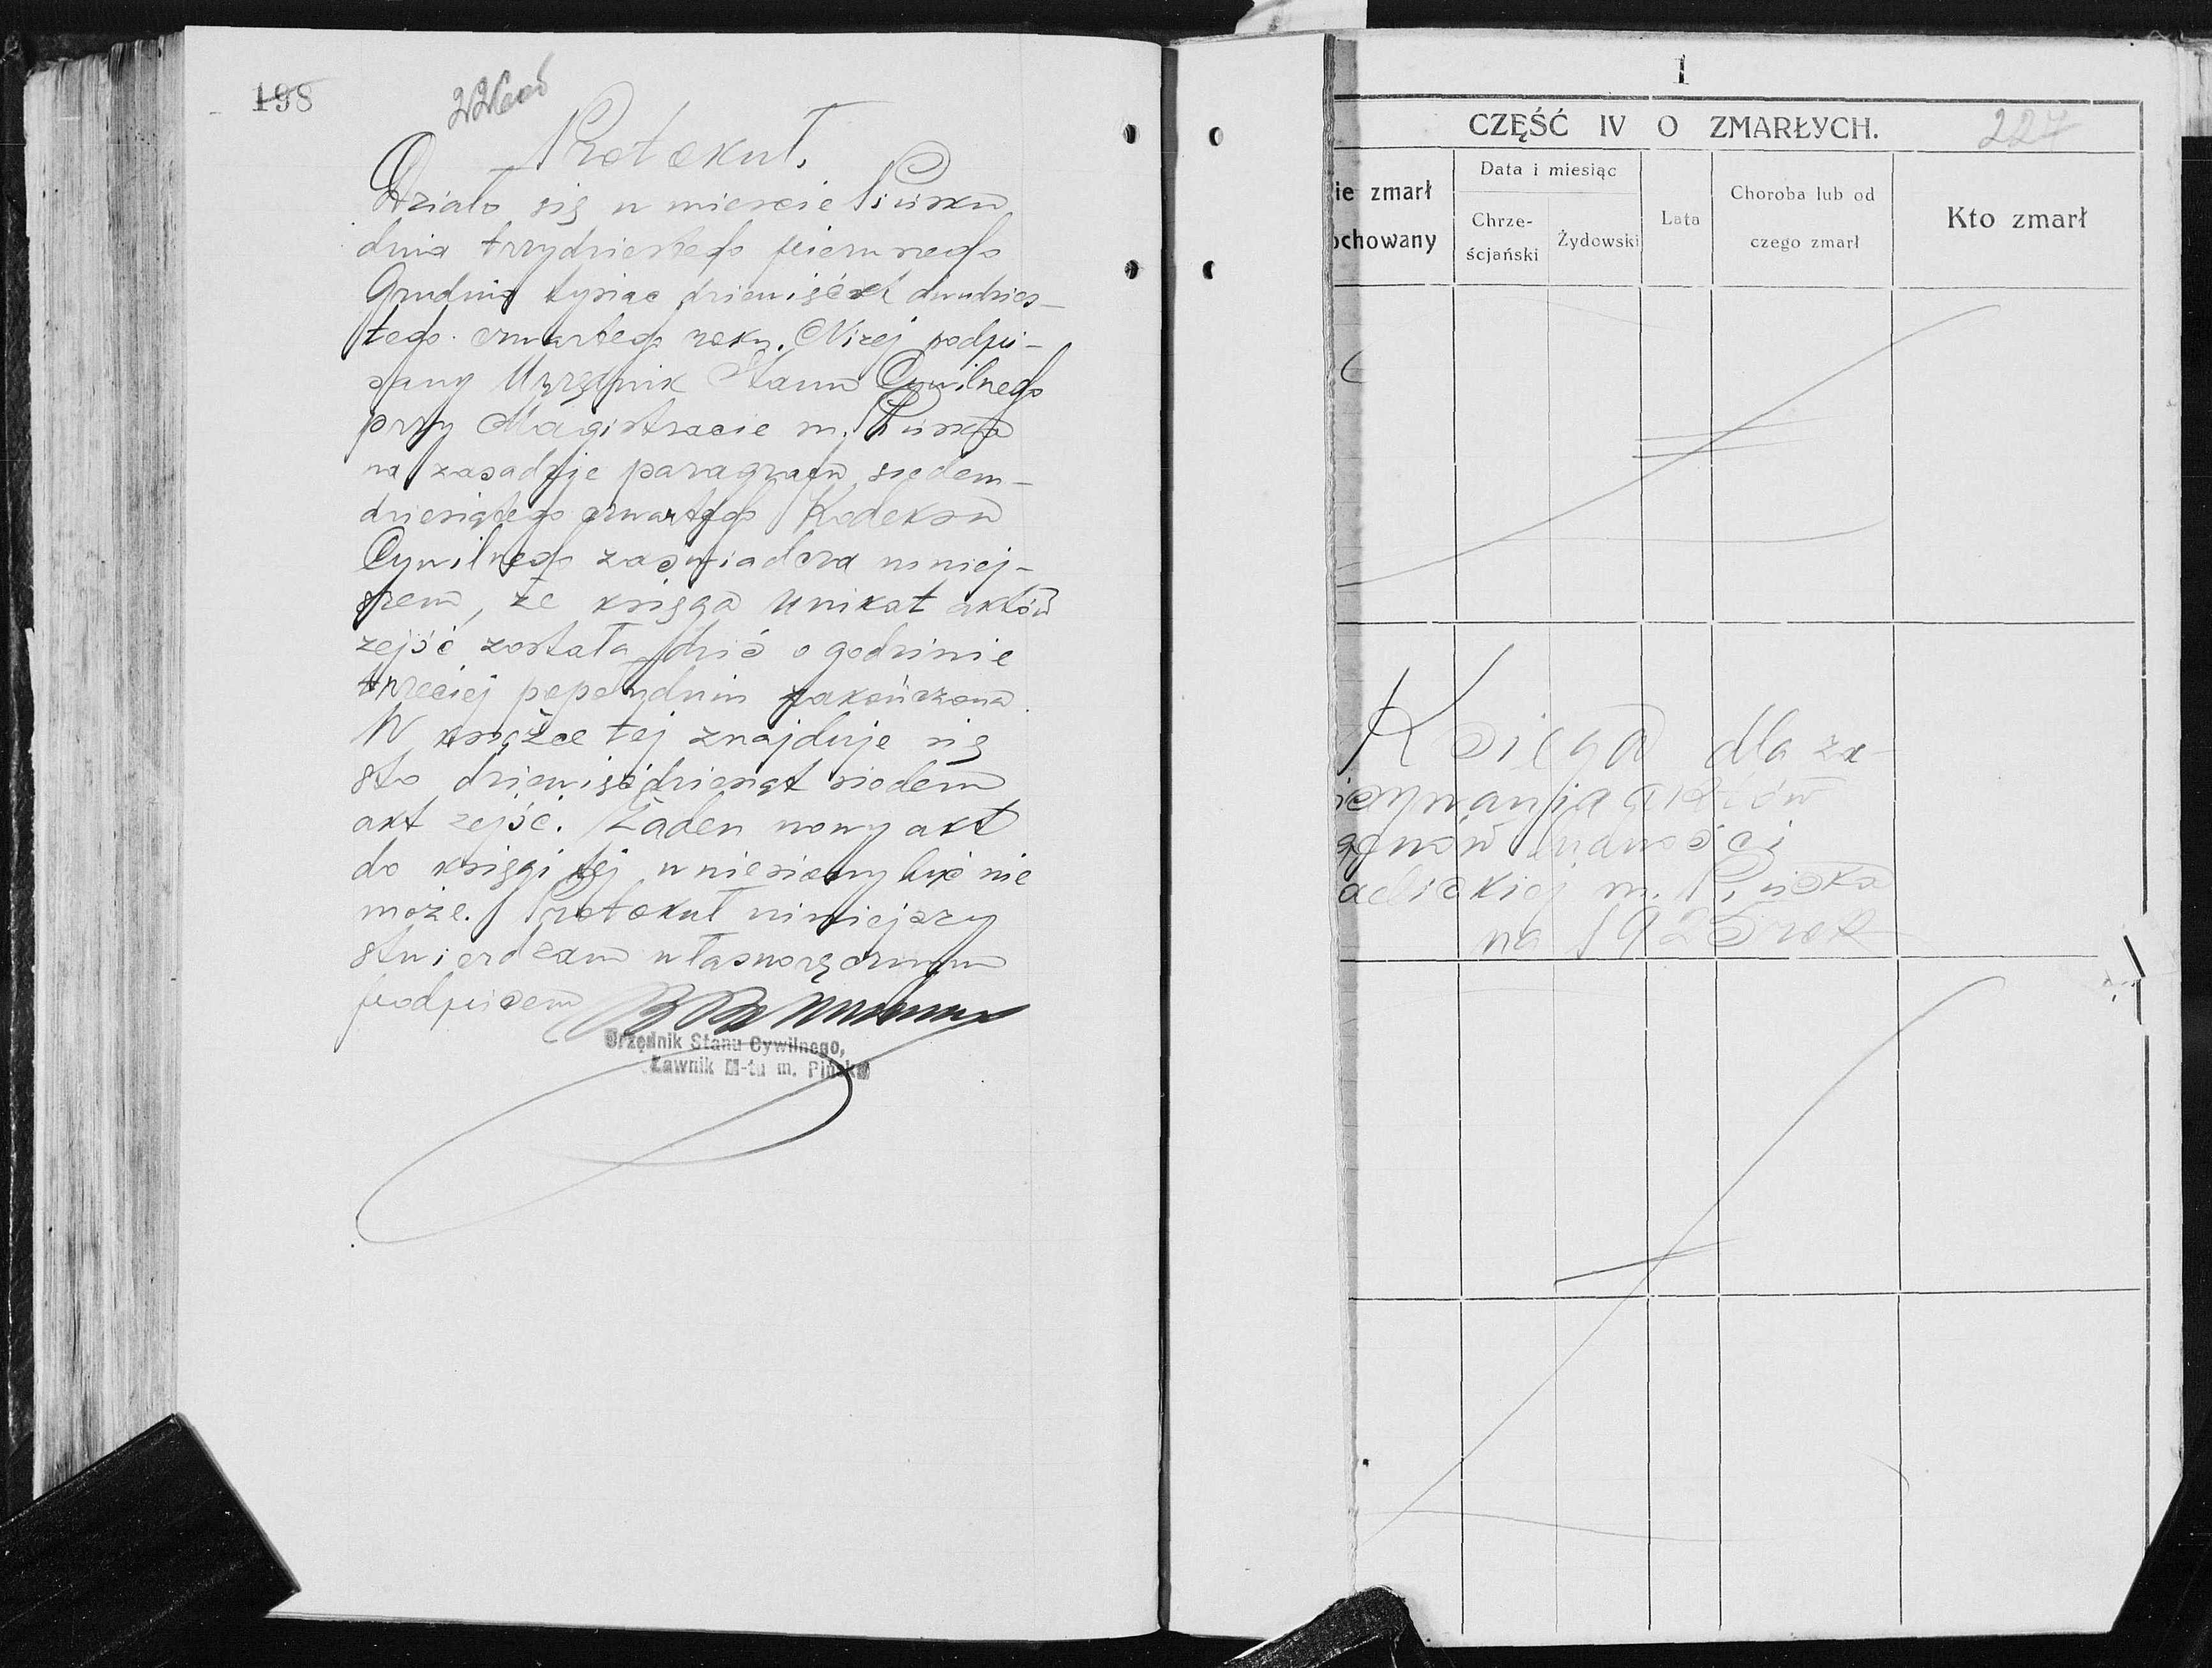 198
Protokuł.
Działo się w mieście Pińsku
dnia trzydziestego pierwszego
Grudnia tysiąc dziewięćset dwudzies-
tego czwartego roku. Niżej podpi-
sany Urzędnik Stanu Cywilnego
przy Magistracie m. Pińska
na zasadzie paragrafu siedem-
dziesiątego czwartego Kodeksu
Cywilnego zaświadcza niniej-
szem, że księga unikat aktów
zejść została dziś o godzinie
trzeciej popołudniu zakończona.
W książce tej znajduje się
sto dziewięćdziesiąt siedem
akt zejść. Żaden nowy akt
do księgi tej wniesiony być nie
może. Protokuł niniejszy
stwierdzam własnoręcznym
podpisem
Urzędnik Stanu Cywilnego,
Ławnik M-tu m. Pińska
1
CZĘŚĆ IV O ZMARŁYCH.
227
ie zmarł
ochowany
Data i miesiąc
Chrze-
ścjański
Żydowski
Lata
Choroba lub od
czego zmarł
Kto zmarł
Księga dla za-
isywania aktów
gonów ludności
adickiej m. Pińska
na 1925 rok